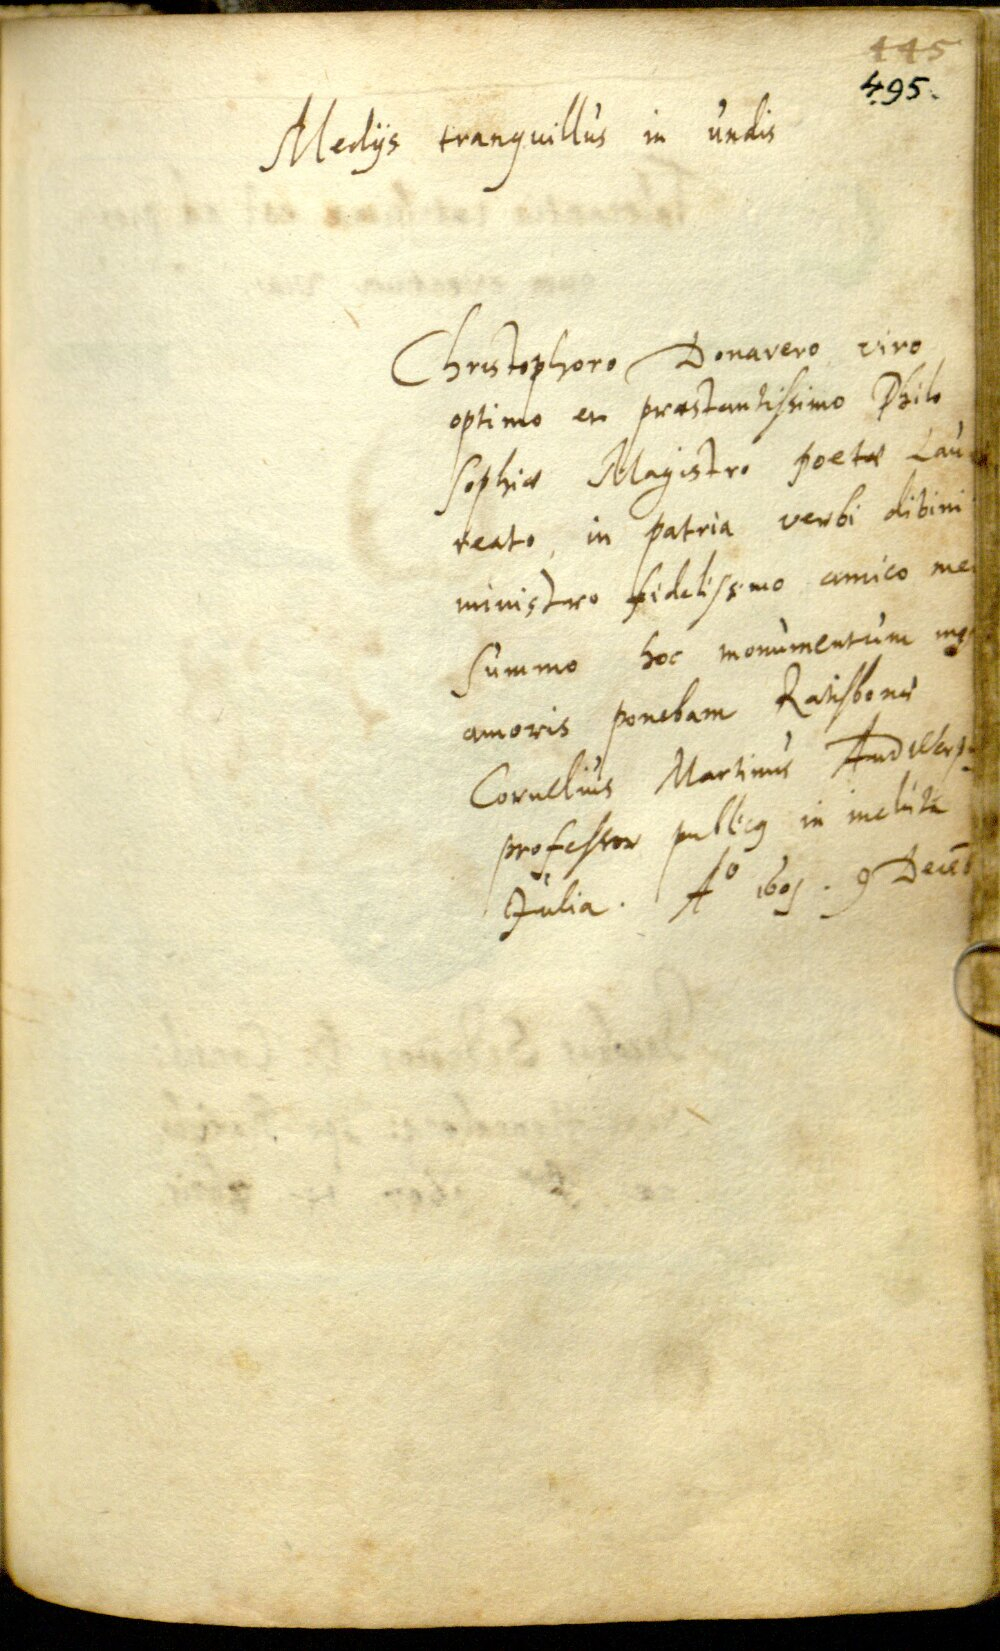 445
495.
Medijs tranquillus in undis
Christophoro Donavero viro
optimo et præstantissimo Philo
sophiæ Magistro poetæ Lau
reato, in patria verbi divini
ministro fidelissimo amico meo
summo hoc monumentum
amoris ponebam Ratisbonæ
Cornelius Martinus
professor public9 in incluta
Julia. Aº 1601. 9 Decēb